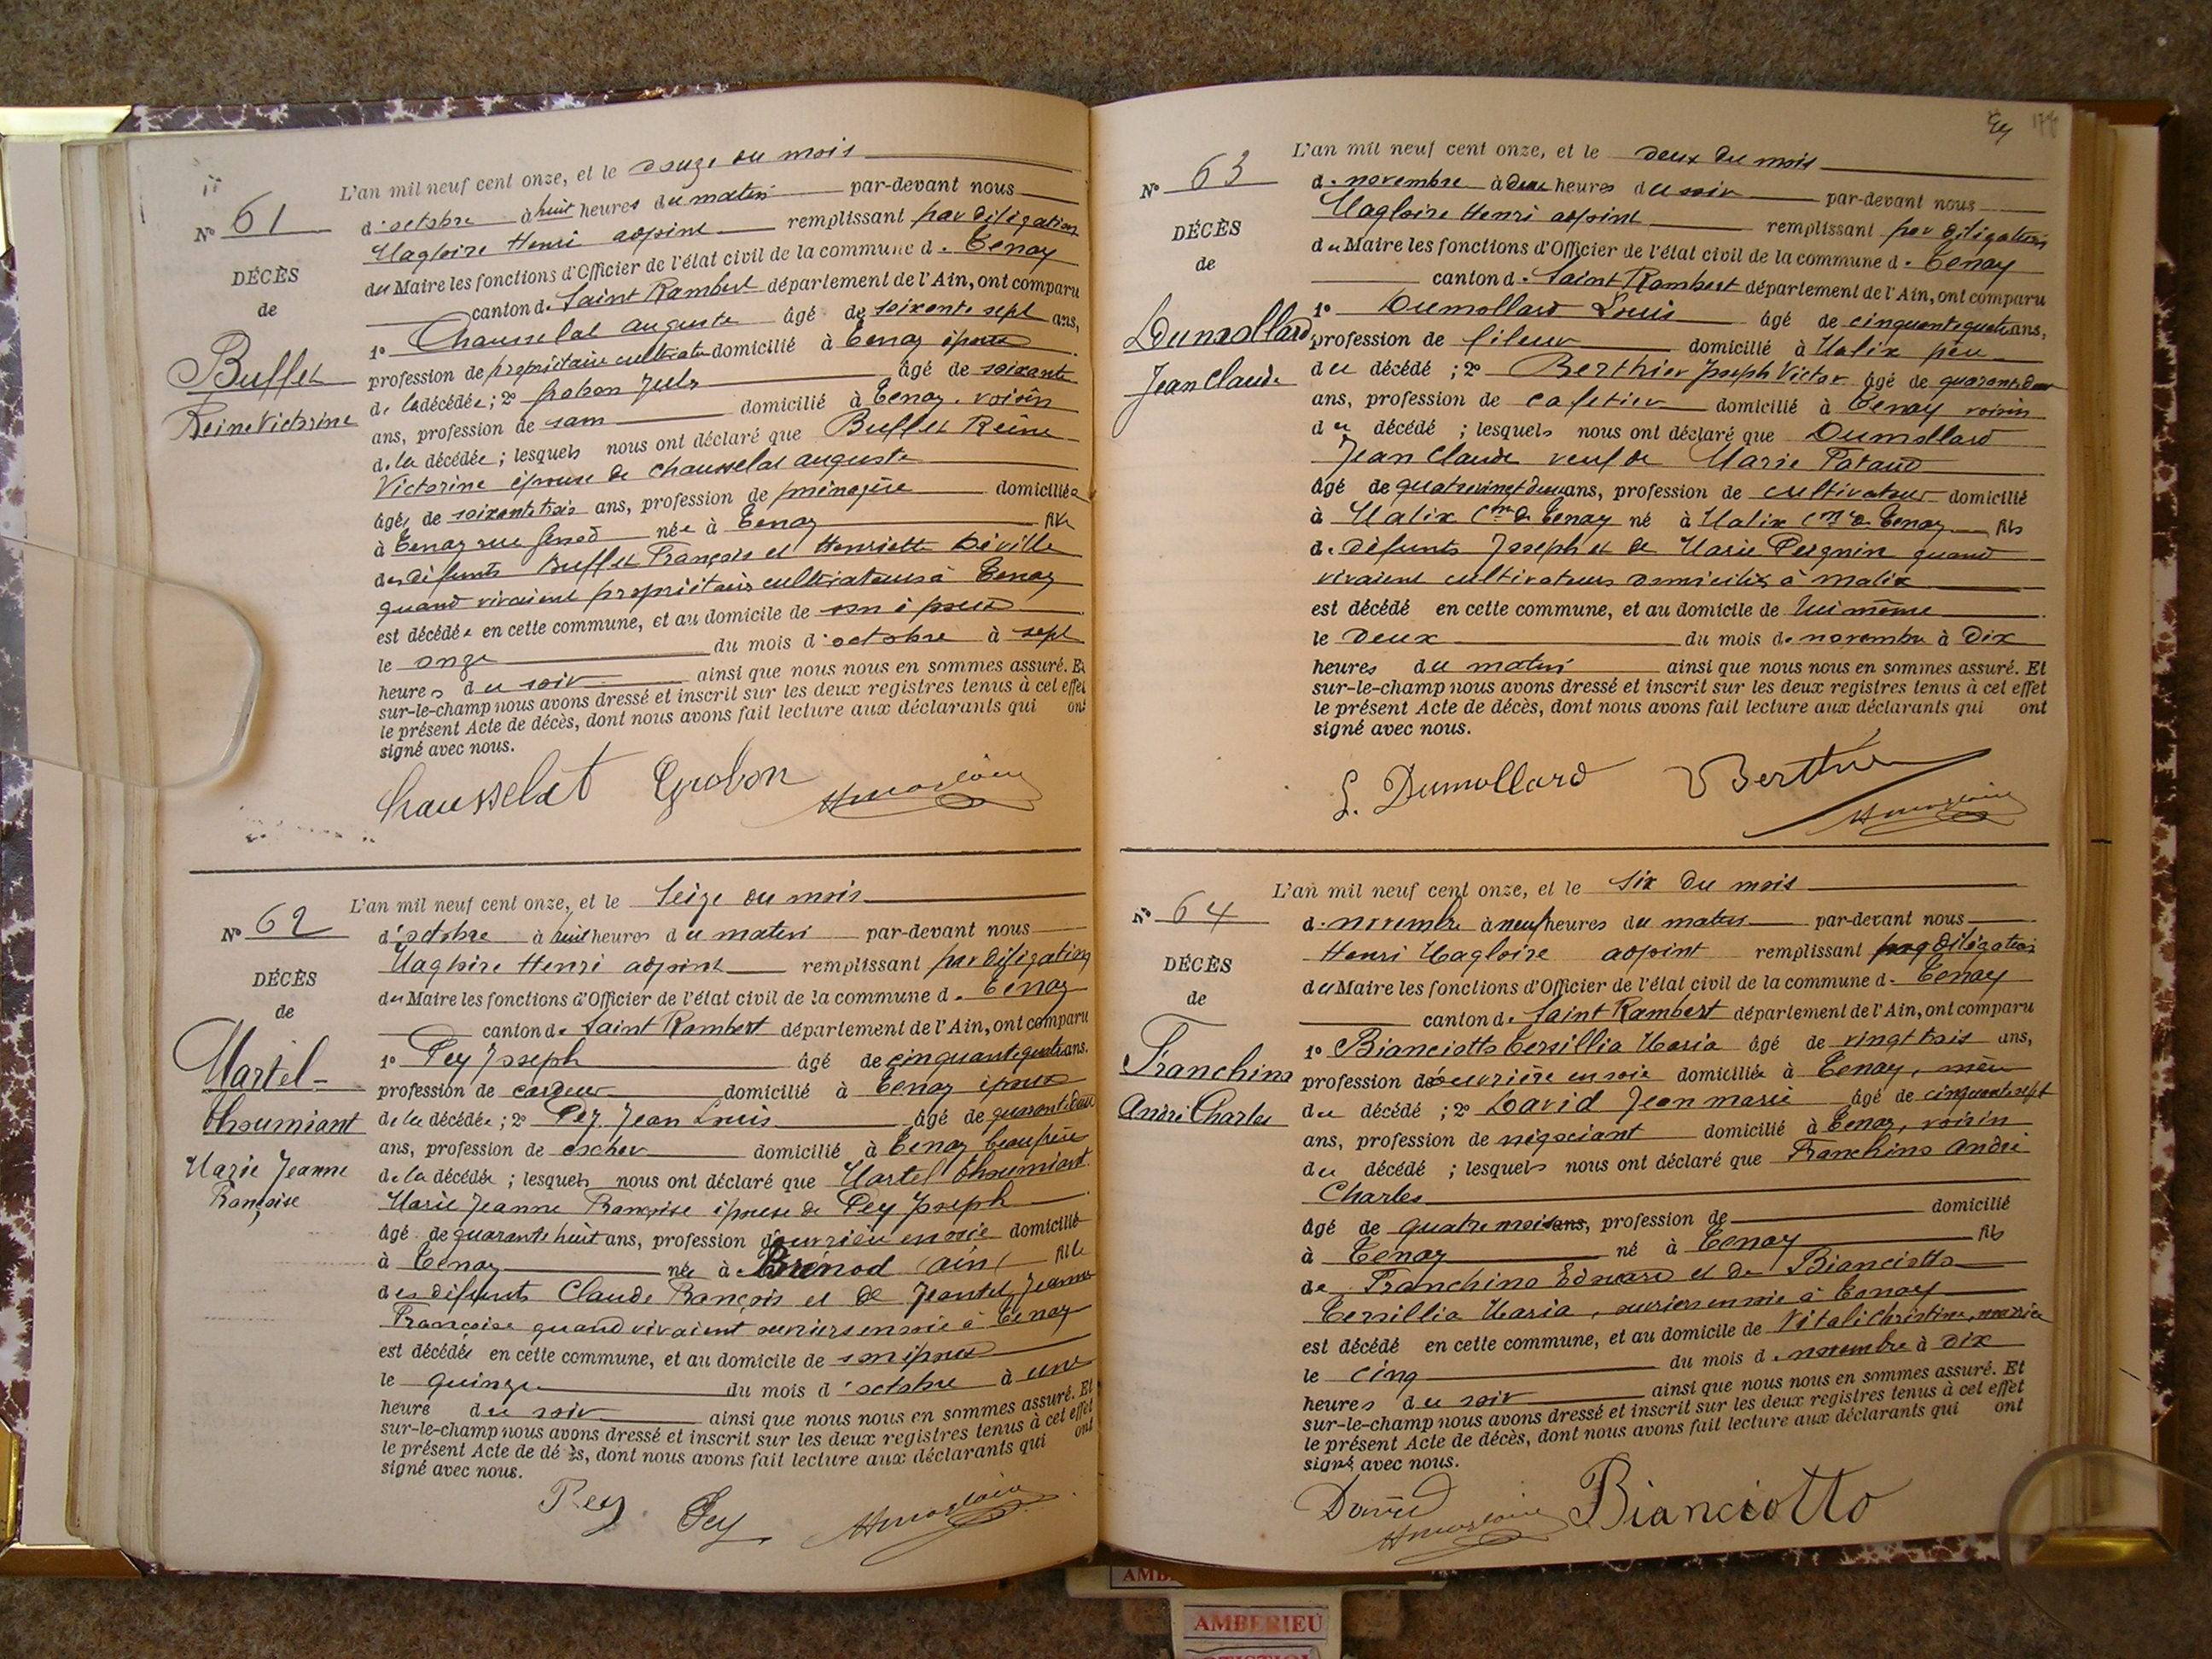 L'an mil neuf cent onze, et le douze du mois
N° 61
d'octobre à huit heures du matin par-devant nous
Magloire Henri adjoint remplissant par délégation
DÉCÈS
du Maire les fonctions d'Officier de l'état civil de la commune de Tenay
de
canton de Saint Rambert département de l'Ain, ont comparu
1° Chausselat Auguste âgé de soixante sept ans,
Buffet
profession de propriétaire cultivateur domicilié à Tenay époux
Reine Victorine
de la décédée; 2° Grobon Jules âgé de soixante
ans, profession de sans domicilié à Tenay. voisin
de la décédée; lesquels nous ont déclaré que Buffet Reine
Victorine épouse de Chausselat Auguste
âgée de soixante trois ans, profession de ménagère domiciliée
à Tenay rue née à Tenay fille
des défunts Buffet François et Henriette Déville
quand vivaient propriétaires cultivateurs à Tenay
est décédée en cette commune, et au domicile de son époux
le onze du mois d'octobre à sept
heures du soir ainsi que nous nous en sommes assuré. Et
sur-le-champ nous avons dressé et inscrit sur les deux registres tenus à cet effet
le présent Acte de décès, dont nous avons fait lecture aux déclarants qui ont
signé avec nous.
Chausselat Grobon HMagloire
L'an mil neuf cent onze, et le Seize du mois
N° 62
d'octobre à huit heures du matin par-devant nous
Magloire Henri adjoint remplissant par délégation
DÉCÈS
du Maire les fonctions d'Officier de l'état civil de la commune de Tenay
de
canton de Saint Rambert département de l'Ain, ont comparu
Martel-
1° Pey Joseph âgé de cinquante quatre ans.
profession de cardeur domicilié à Tenay époux
Thoumiant
de la décédée; 2° Pey Jean Louis âgé de quarante deux
ans, profession de cocher domicilié à Tenay beau frère
Marie Jeanne
de la décédée; lesquels nous ont déclaré que Martel Thoumiant
Françoise
Marie Jeanne Françoise épouse de Pey Joseph
âgé de quarante huit ans, profession d'ouvrière en soie domicilié
à Tenay née à Brénod (Ain) fille
des défunts Claude François et de Jeantet Jeanne
Françoise quand vivaient ouvriers en soie à Tenay
est décédée en cette commune, et au domicile de son époux
le quinze du mois d'octobre à une
heure du soir ainsi que nous nous en sommes assuré. Et
sur-le-champ nous avons dressé et inscrit sur les deux registres tenus à cet effet
le présent Acte de décès, dont nous avons fait lecture aux déclarants qui ont
signé avec nous.
Pey Pey HMagloire
L'an mil neuf cent onze, et le deux du mois
N° 63
de novembre à deux heures du soir par-devant nous
Magloire Henri adjoint remplissant par délégation
DÉCÈS
du Maire les fonctions d'Officier de l'état civil de la commune de Tenay
de
canton de Saint Rambert département de l'Ain, ont comparu
1° Dumollard Louis âgé de cinquante quatre ans,
Dumollard
profession de fileur domicilié à Malix
Jean Claude
du décédé; 2° Berthier Joseph Victor âgé de quarante deux
ans, profession de cafetier domicilié à Tenay voisin
du décédé; lesquels nous ont déclaré que Dumollard
Jean Claude veuf de Marie Pataud
âgé de quatre vingt deux ans, profession de cultivateur domicilié
à Malix Cne de Tenay né à Malix Cne de Tenay fils
de défunts Joseph et de Marie quand
vivaient cultivateurs domiciliés à Malix
est décédé en cette commune, et au domicile de lui même
le deux du mois de novembre à dix
heures du matin ainsi que nous nous en sommes assuré. Et
sur-le-champ nous avons dressé et inscrit sur les deux registres tenus à cet effet
le présent Acte de décès, dont nous avons fait lecture aux déclarants qui ont
signé avec nous.
L. Dumollard VBerthier HMagloire
L'an mil neuf cent onze, et le six du mois
N° 64
de novembre à neuf heures du matin par-devant nous
Henri Magloire adjoint remplissant délégation
DÉCÈS
du Maire les fonctions d'Officier de l'état civil de la commune de Tenay
de
canton de Saint Rambert département de l'Ain, ont comparu
Franchino
1° Bianciotto Tersillia Maria âgé de vingt trois ans,
profession d'ouvrière en soie domiciliée à Tenay, mère
André Charles
du décédé; 2° David Jean marie âgé de cinquante sept
ans, profession de négociant domicilié à Tenay, voisin
du décédé; lesquels nous ont déclaré que Franchino André
Charles
âgé de quatre mois ans, profession de domicilié
à Tenay né à Tenay fils
de Franchino Edouard et de Bianciotto
Tersillia Maria, ouvriers en soie à Tenay
est décédé en cette commune, et au domicile de Vitali Christine,
le cinq du mois de novembre à dix
heures du soir ainsi que nous nous en sommes assuré. Et
sur-le-champ nous avons dressé et inscrit sur les deux registres tenus à cet effet
le présent Acte de décès, dont nous avons fait lecture aux déclarants qui ont
signé avec nous.
David HMagloire Bianciotto
AMBERIEU